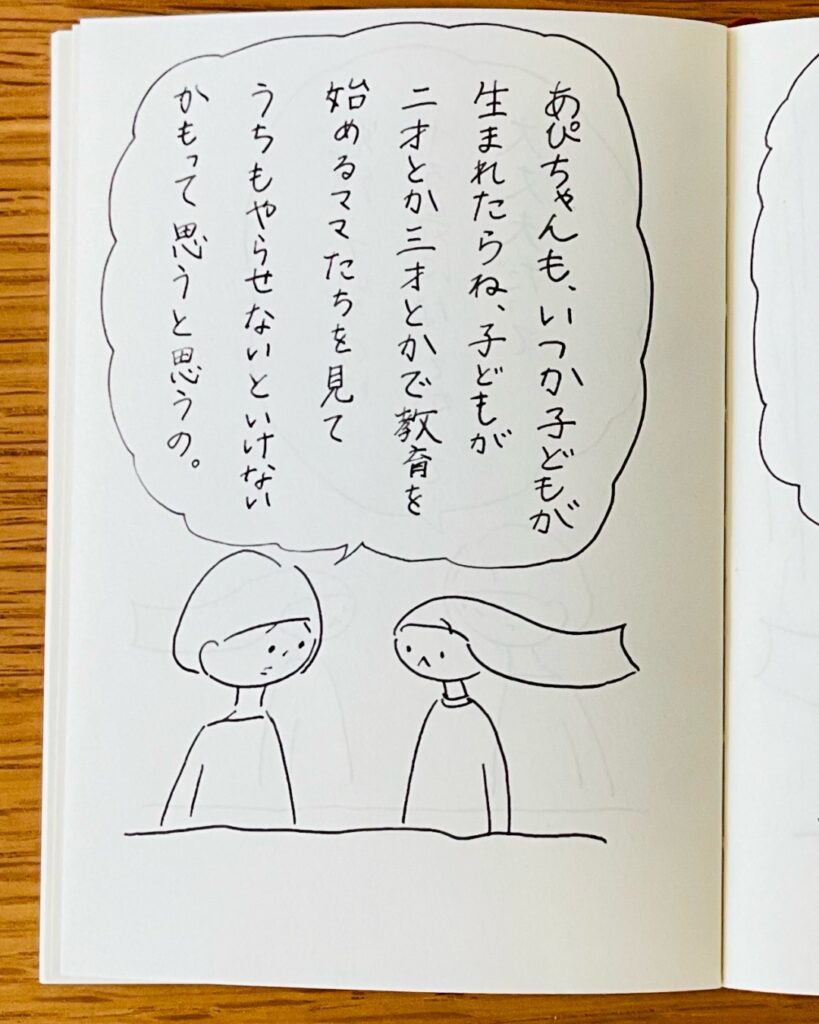 あぴちゃんも、いつか子どもが
生まれたらね、子どもが
二才とか三才とかで教育を
始めるママたちを見て
うちもやらせないといけない
かもって思うと思うの。